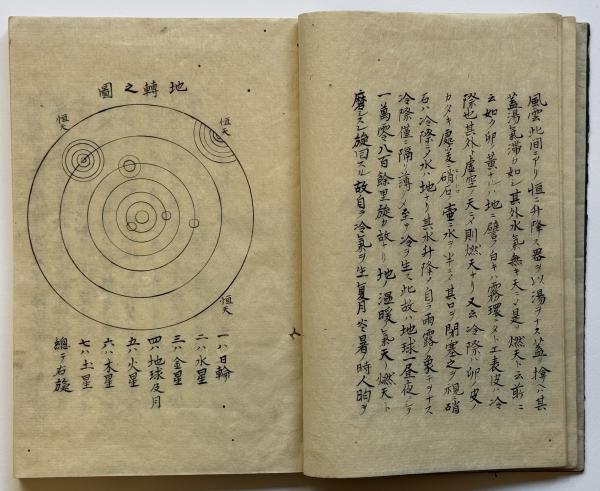 風雲此間ニアリ恒ニ升降ス器ヲ以湯ヲナス蓋ハ其
蓋湯氣滞カ如シ其外水氣無キ天ニ是ヲ燃天ト云前ニ
云如ク卵ノ黄ナルハ地ニ譬ヘ白キハ霧環ニタトエ表皮ハ冷
際也其外ト虛空ノ天ニメ則燃天ナリ又云冷際ハ卵ノ皮ノ
カタキ處硝石壷ニ水ヲ半ニ其口ヲ閉塞之ヲ視ニ硝
石ハ冷際ニテ水ハ地ナリ其水升降ノ自ラ雨露ノ象チヲナス
冷際僅ニ隔リ薄クノ至テ冷ヲ生ス此故ハ地球昼夜ニ
一萬零八百餘里旋カ故ナリ地ノ温暖ノ氣ト燃天ト
磨旋回スル故自ラ冷氣ヲ生ス夏月冬暑ノ時人ヲ
地轉之圖
恒天
恒天
恒天
一ハ日輪
二ハ水星
三ハ金星
四ハ地球及月
五ハ火星
六ハ木星
七ハ土星
總テ右旋